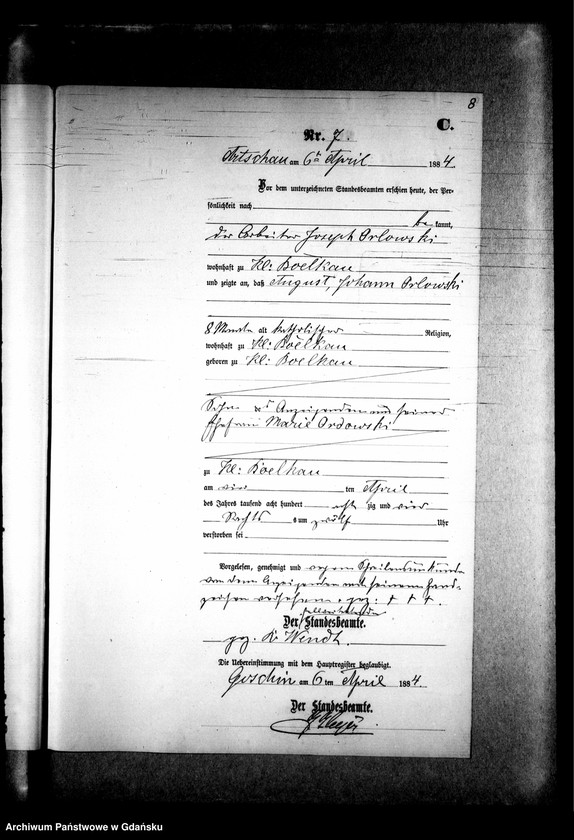 8
C.
Nr. 7.
Artschau am 6ten April 1884.
Vor dem unterzeichneten Standesbeamten erschien heute, der Per-
sönlichkeit nach
bekannt,
der Arbeiter Joseph Orlowski
wohnhaft zu Kl: Boelkau
und zeigte an, daß August, Johann Orlowski
8 Monate alt katholischer Religion,
wohnhaft zu Kl: Boelkau
geboren zu Kl: Boelkau
Sohn des Anzeigenden und seiner
Ehefrau Marie Orlowski
zu Kl: Boelkau
am vier ten April
des Jahres tausend acht hundert acht zig und vier
Nachts um zwölf Uhr
verstorben sei
Vorgelesen, genehmigt und wegen Schreibensunkunde
von dem Anzeigenden mit seinem Hand-
zeichen versehen. gez: + + +.
Der Standesbeamte.
gez. Wendt.
Die Uebereinstimmung mit dem Hauptregister beglaubigt.
Goschin am 6 ten April 1884.
Der Standesbeamte.
Archiwum Państwowe w Gdańsku